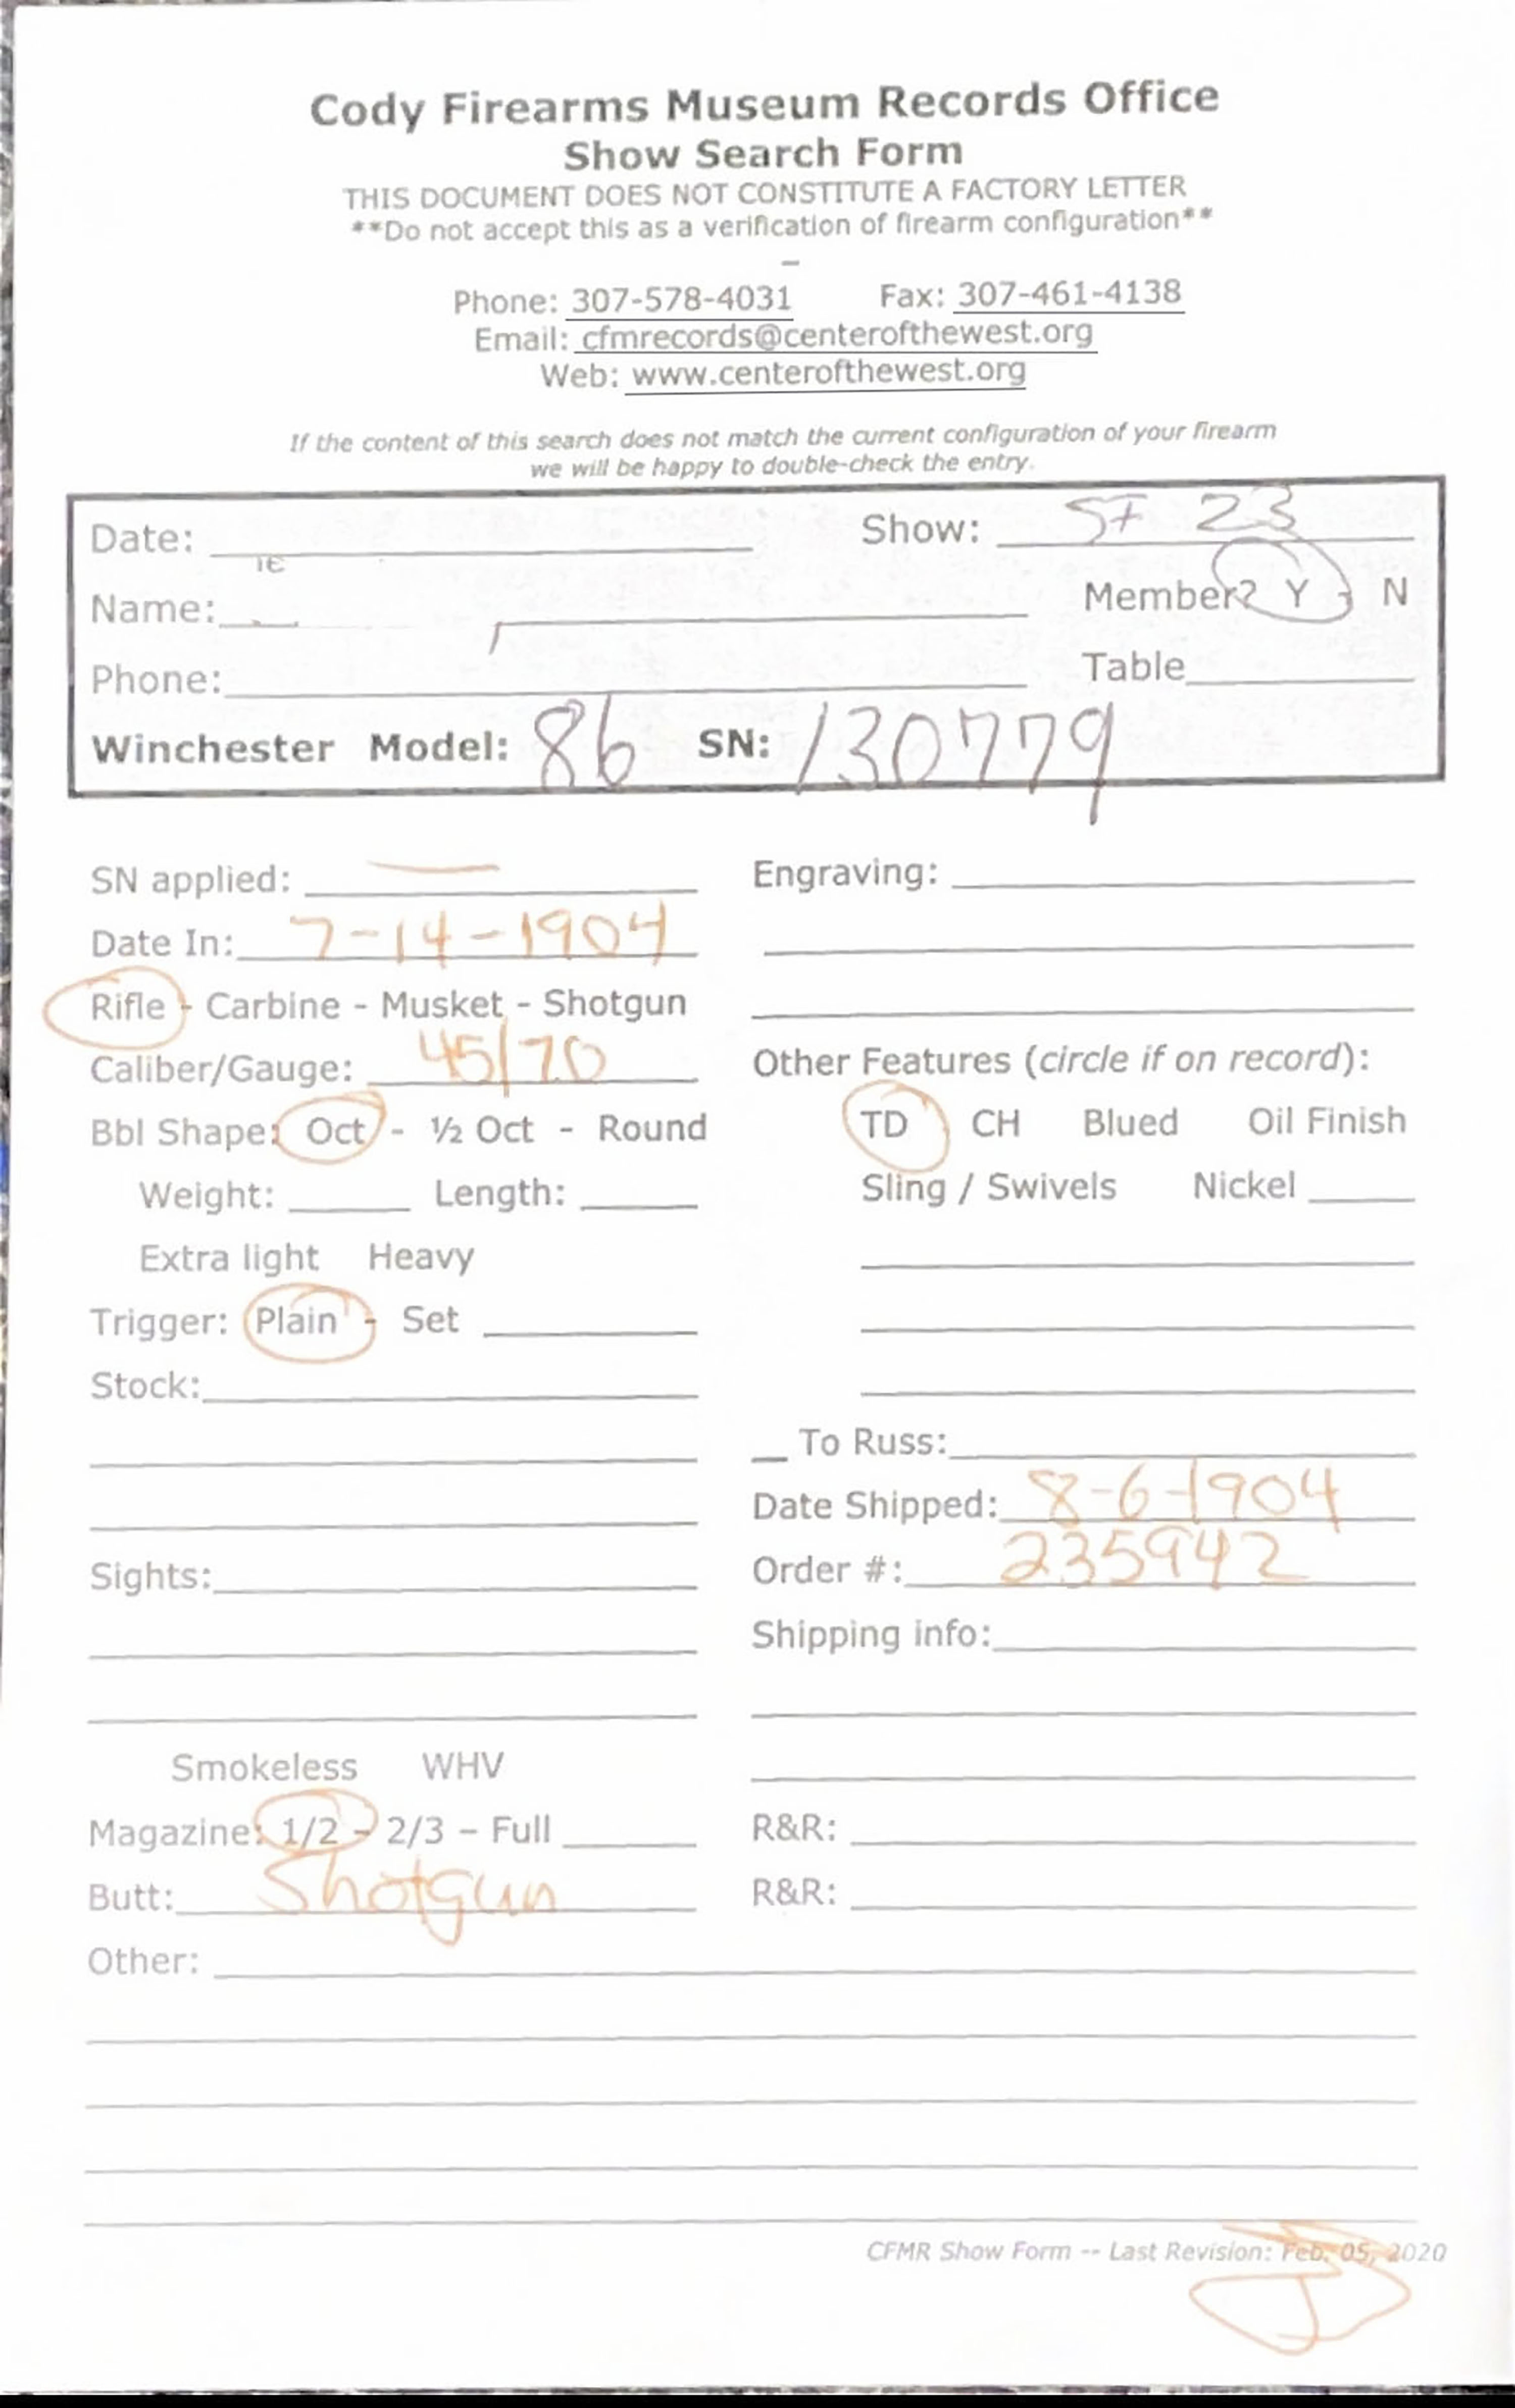 Cody Firearms Museum Records Office
Show Search Form
THIS DOCUMENT DOES NOT CONSTITUTE A FACTORY LETTER
**Do not accept this as a verification of firearm configuration**
–
Phone: 307-578-4031 Fax: 307-461-4138
Email: cfmrecords@centerofthewest.org
Web: www.centerofthewest.org
If the content of this search does not match the current configuration of your firearm
we will be happy to double-check the entry.
Date: Show: SF 23
Name: Member? Y - N
Phone: Table
Winchester Model: 86 SN: 130779
SN applied: — Engraving:
Date In: 7-14-1904
Rifle - Carbine - Musket - Shotgun
Caliber/Gauge: 45/70 Other Features (circle if on record):
Bbl Shape: Oct - ½ Oct - Round TD CH Blued Oil Finish
Weight: Length: Sling / Swivels Nickel
Extra light Heavy
Trigger: Plain - Set
Stock:
To Russ:
Date Shipped: 8-6-1904
Sights: Order #: 235942
Shipping info:
Smokeless WHV
Magazine: 1/2 – 2/3 – Full R&R:
Butt: Shotgun R&R:
Other:
CFMR Show Form -- Last Revision: Feb. 05, 2020